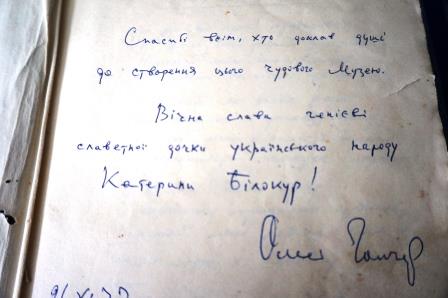 Спасибі всім, хто доклав душі
до створення цього чудового Музею.
Вічна слава генієві
славетної дочки українського народу
Катерини Білокур!
Олесь Гончар